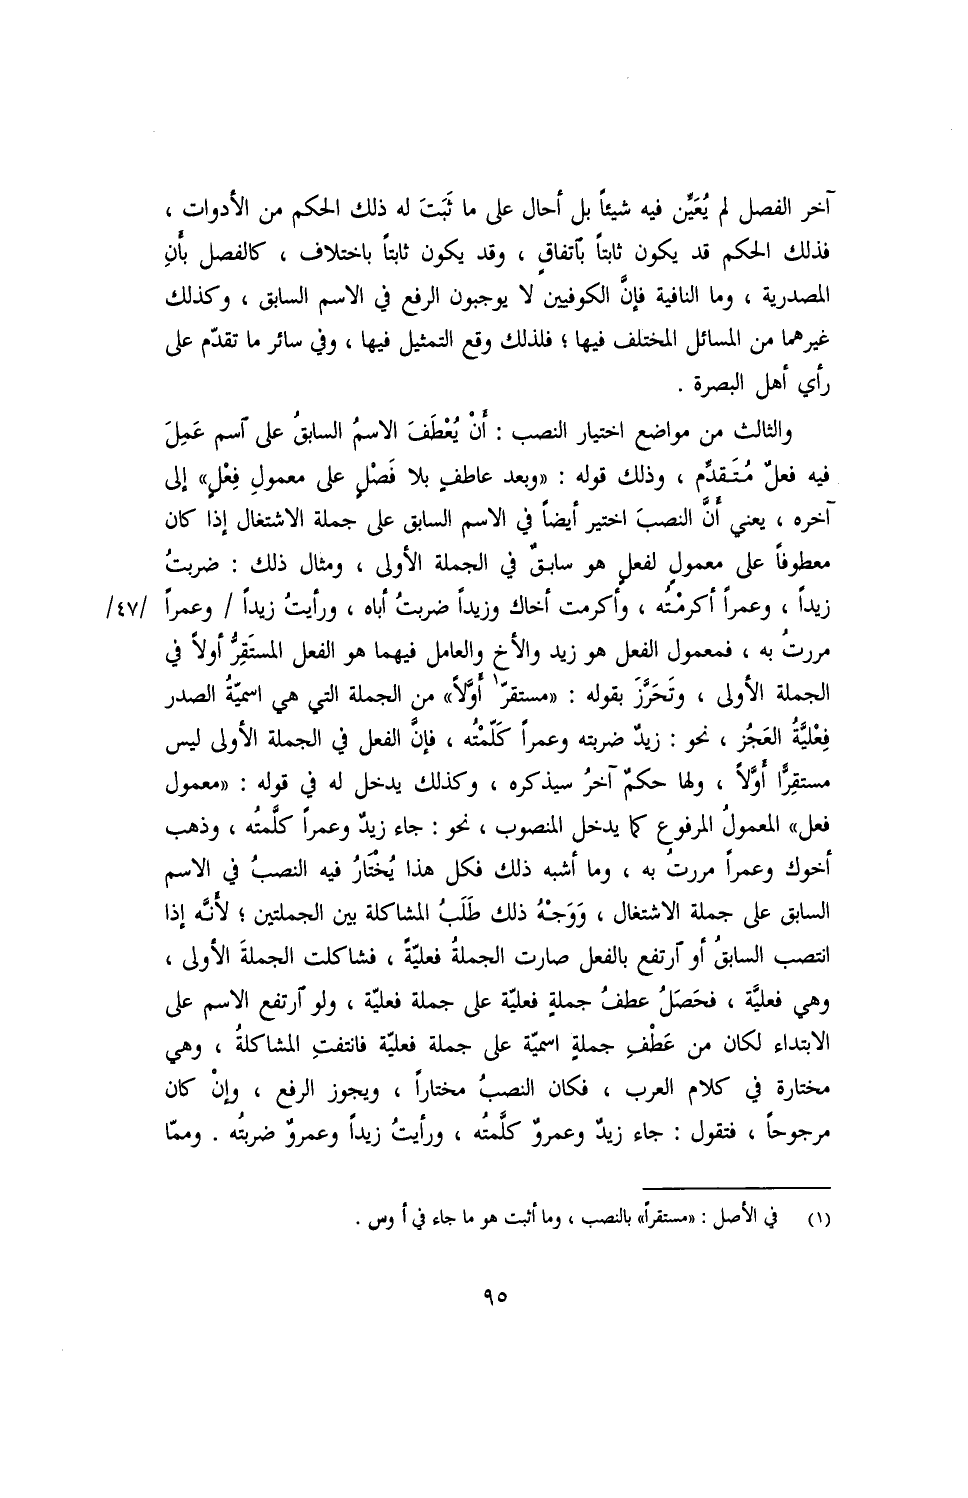 آخر الفصل لم يُعَيِّن فيه شيئاً بل أحال على ما ثَبَتَ له ذلك الحكم من الأدوات ،
فذلك الحكم قد يكون ثابتاً بٱتفاقٍ ، وقد يكون ثابتاً باختلاف ، كالفصل بأَنِ
المصدرية ، وما النافية فإنَّ الكوفيين لا يوجبون الرفع في الاسم السابق ، وكذلك
غيرهما من المسائل المختلف فيها ؛ فلذلك وقع التمثيل فيها ، وفي سائر ما تقدّم على
رأي أهل البصرة .
والثالث من مواضع اختيار النصب : أَنْ يُعْطَفَ الاسمُ السابقُ على ٱسم عَمِلَ
فيه فعلٌ مُتَقدِّم ، وذلك قوله : «وبعد عاطفٍ بلا فَصْلٍ على معمولِ فِعْلٍ» إلى
آخره ، يعني أَنَّ النصبَ اختير أيضاً في الاسم السابق على جملة الاشتغال إذا كان
معطوفاً على معمولٍ لفعلٍ هو سابقٌ في الجملة الأولى ، ومثال ذلك : ضربتُ
زيداً ، وعمراً أكرمْتُه ، وأكرمت أخاك وزيداً ضربتُ أباه ، ورأيتُ زيداً / وعمراً /٤٧/
مررتُ به ، فمعمول الفعل هو زيد والأخ والعامل فيهما هو الفعل المستَقِرُّ أولاً في
الجملة الأولى ، وتَحَرَّزَ بقوله : «مستقرّ¹ أَوَّلاً» من الجملة التي هي اسميّةُ الصدر
فِعْليَّةُ العَجُز ، نحو : زيدٌ ضربته وعمراً كَلّمْتُه ، فإنَّ الفعل في الجملة الأولى ليس
مستقِرًّا أَوَّلاً ، ولها حكمٌ آخرُ سيذكره ، وكذلك يدخل له في قوله : «معمول
فعل» المعمولُ المرفوع كما يدخل المنصوب ، نحو : جاء زيدٌ وعمراً كلَّمتُه ، وذهب
أخوك وعمراً مررتُ به ، وما أشبه ذلك فكل هذا يُخْتَارُ فيه النصبُ في الاسم
السابق على جملة الاشتغال ، وَوَجْهُ ذلك طَلَبُ المشاكلة بين الجملتين ؛ لأَنَّه إذا
انتصب السابقُ أو ٱرتفع بالفعل صارت الجملةُ فعليّةً ، فشاكلت الجملةَ الأولى ،
وهي فعليَّة ، فحَصَلُ عطفُ جملةٍ فعليّة على جملة فعليّة ، ولو ٱرتفع الاسم على
الابتداء لكان من عَطْفِ جملةٍ اسميّة على جملة فعليّة فانتفتِ المشاكلةُ ، وهي
مختارة في كلام العرب ، فكان النصبُ مختاراً ، ويجوز الرفع ، وإنْ كان
مرجوحاً ، فتقول : جاء زيدٌ وعمروٌ كلَّمتُه ، ورأيتُ زيداً وعمروٌ ضربتُه . وممّا
(١) في الأصل : «مستقراً» بالنصب ، وما أثبت هو ما جاء في أ وس .
٩٥